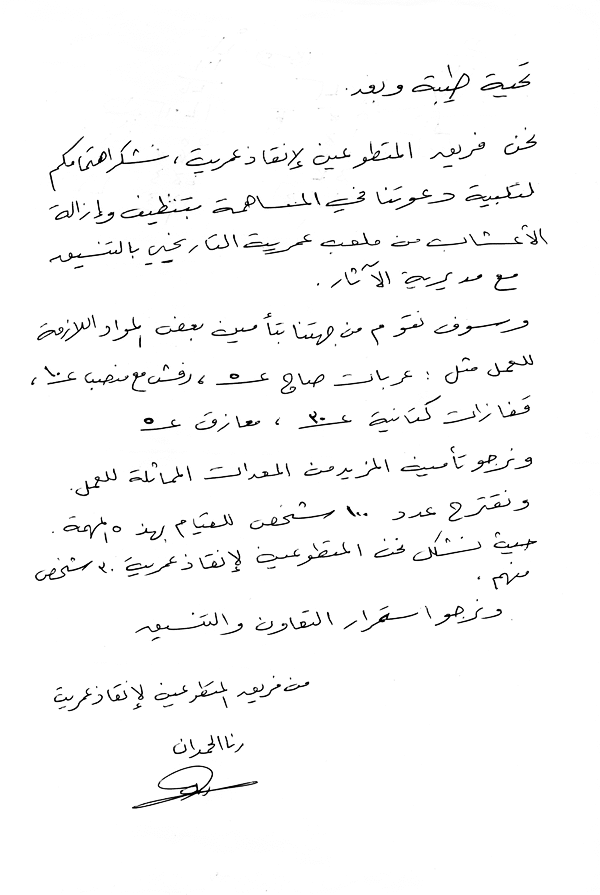 تحية طيبة وبعد.
نحن فريق المتطوعين لإنقاذ عمريت، نشكر اهتمامكم
لتلبية دعوتنا في المساهمة بتنظيف وإزالة
الأعشاب من ملعب عمريت التاريخي بالتنسيق
مع مديرية الآثار.
وسوف نقوم من جهتنا بتأمين بعض المواد اللازمة
للعمل مثل: عربات صاج عـ ٥، رفش مع منصب عـ ١٠،
قفازات كتانية عـ ٣٠، معازق عـ ٥
ونرجو تأمين المزيد من المعدات المماثلة للعمل.
ونقترح عدد ١٠٠ شخص للقيام بهذه المهمة.
حيث نشكل نحن المتطوعين لإنقاذ عمريت ٣٠ شخص
منهم.
ونرجو استمرار التعاون والتنسيق
من فريق المتطوعين لإنقاذ عمريت
رنا الحمدان